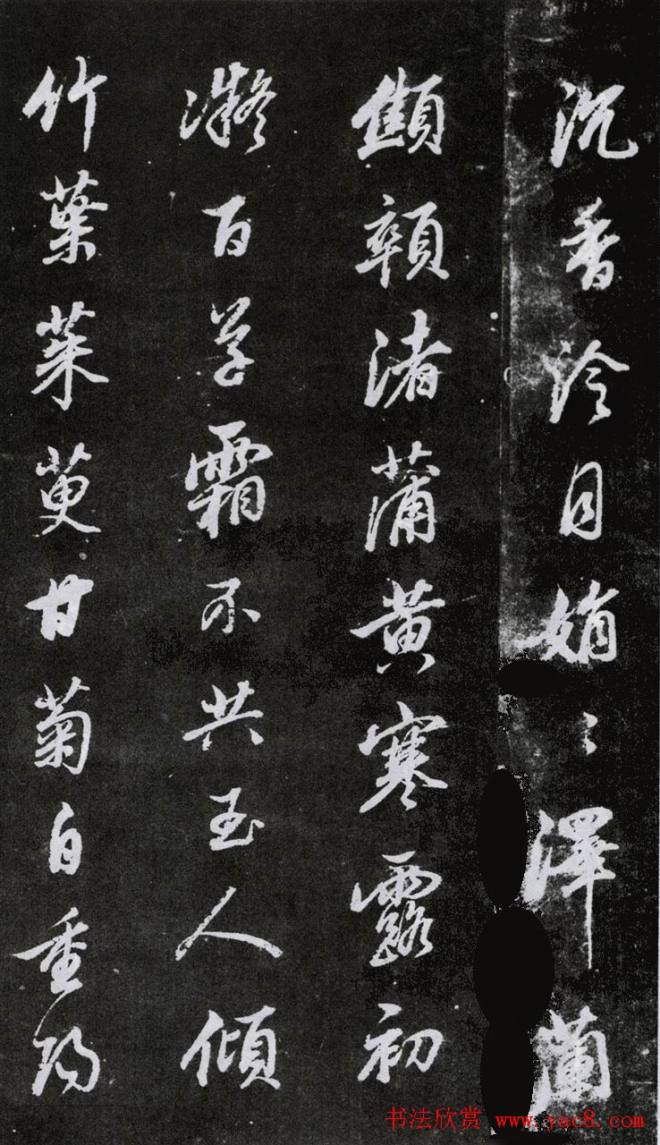 沉香冷月娟〻澤蘭
顦顇渚蒲黄寒露初
凝百草霜不共玉人傾
竹葉茱萸甘菊自重陽
书法欣赏 www.yac8.com